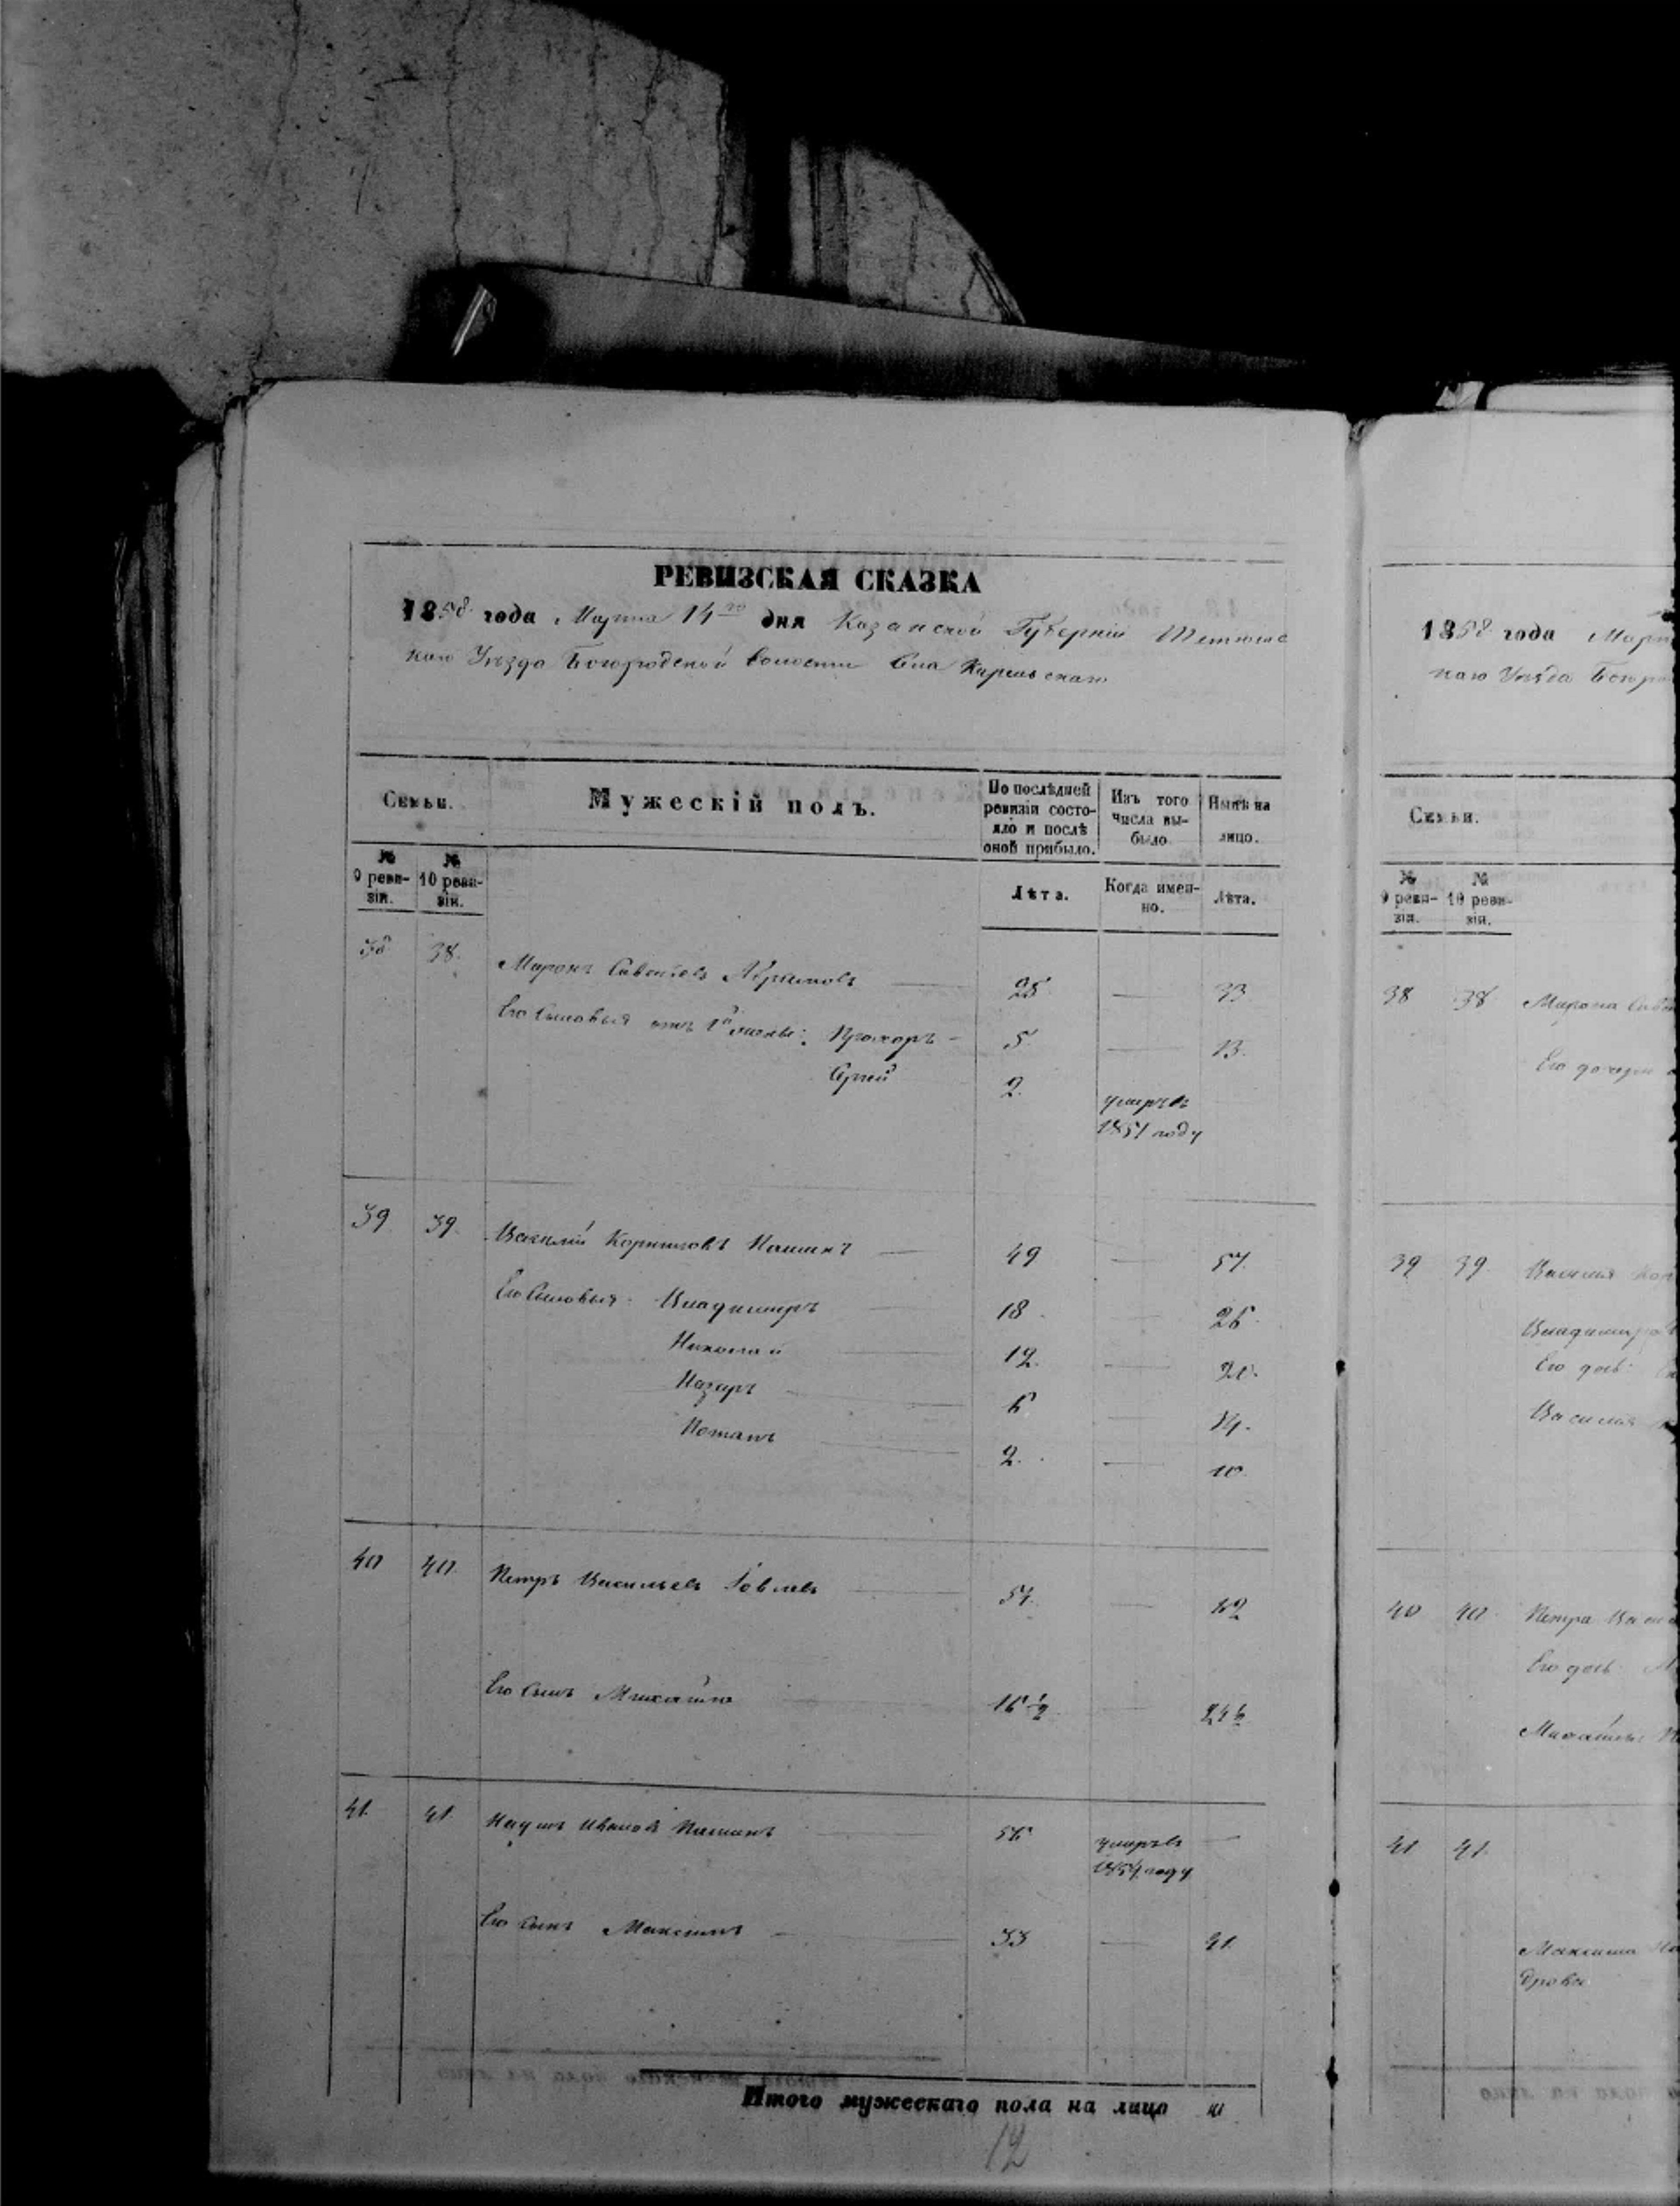 РЕВИЗСКАЯ СКАЗКА
1858 года Марта 14го дня Казанской Губерніи Тетюшс
каго Уѣзда Богородской волости Села
Семьи.
Мужескій полъ.
По послѣдней ревизіи состояло и послѣ оной прибыло.
Изъ того числа выбыло
Нынѣ на лицо.
№ 9 ревизіи.
№ 10 ревизіи.
Лѣта.
Когда именно.
Лѣта.
38 38. Миронъ Савельевъ Абрамовъ 25 — 33
Его сыновья отъ 1й жены: Прохоръ 5 — 13.
Сергей 2. умеръ въ
1851 году
39 39. Василій Корниловъ Пашинъ 49 — 57.
Его сыновья: Владимиръ 18 — 26
Николай 12. — 20.
Назаръ 6 — 14.
Потапъ 2. — 10.
40 40. Петръ Васильевъ 54. — 62
Его сынъ Михайло 16 1/2 — 24 1/2
41. 41. Наумъ Ивановъ Пашинъ 56 умеръ въ —
1854 году
Его сынъ Максимъ 33 — 41.
Итого мужескаго пола на лицо 10
12
1858 года Март
каго Уѣзда Богоро
Семьи.
№ 9 ревизіи.
№ 10 ревизіи.
38 38 Мирона Саве
Его дочери
39 39. Василія Кор
Владимира
Его дочь
Василія
40 40 Петра Васи
Его дочь М
Михайлы
41 41.
Максима На